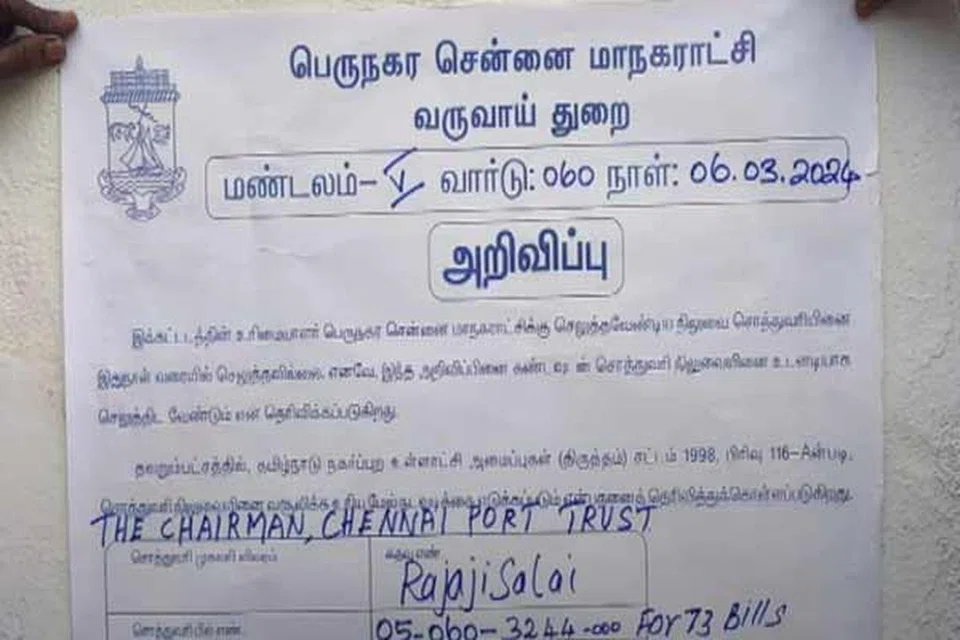 பெருநகர சென்னை மாநகராட்சி
வருவாய் துறை
மண்டலம்-V வார்டு: 060 நாள்: 06.03.2024
அறிவிப்பு
இக்கட்டடத்தின் உரிமையாளர் பெருநகர சென்னை மாநகராட்சிக்கு செலுத்தவேண்டிய நிலுவை சொத்துவரியினை
இதுநாள் வரையில் செலுத்தவில்லை. எனவே, இந்த அறிவிப்பினை கண்டவுடன் சொத்துவரி நிலுவையினை உடனடியாக
செலுத்திட வேண்டும் என தெரிவிக்கப்படுகிறது.
தவறும்பட்சத்தில், தமிழ்நாடு நகர்ப்புற உள்ளாட்சி அமைப்புகள் (திருத்தம்) சட்டம் 1998, பிரிவு 116-Aன்படி,
சொத்துவரி நிலுவையினை வசூலிக்க உரிய மேல்நடவடிக்கை எடுக்கப்படும் என்பதனைத் தெரிவித்துக்கொள்ளப்படுகிறது.
THE CHAIRMAN, CHENNAI PORT TRUST
சொத்துவரி முகவரி விவரம் கதவு எண்.
Rajaji Salai
சொத்துவரி பில் எண். 05-060-3244-000 FOR 73 Bills